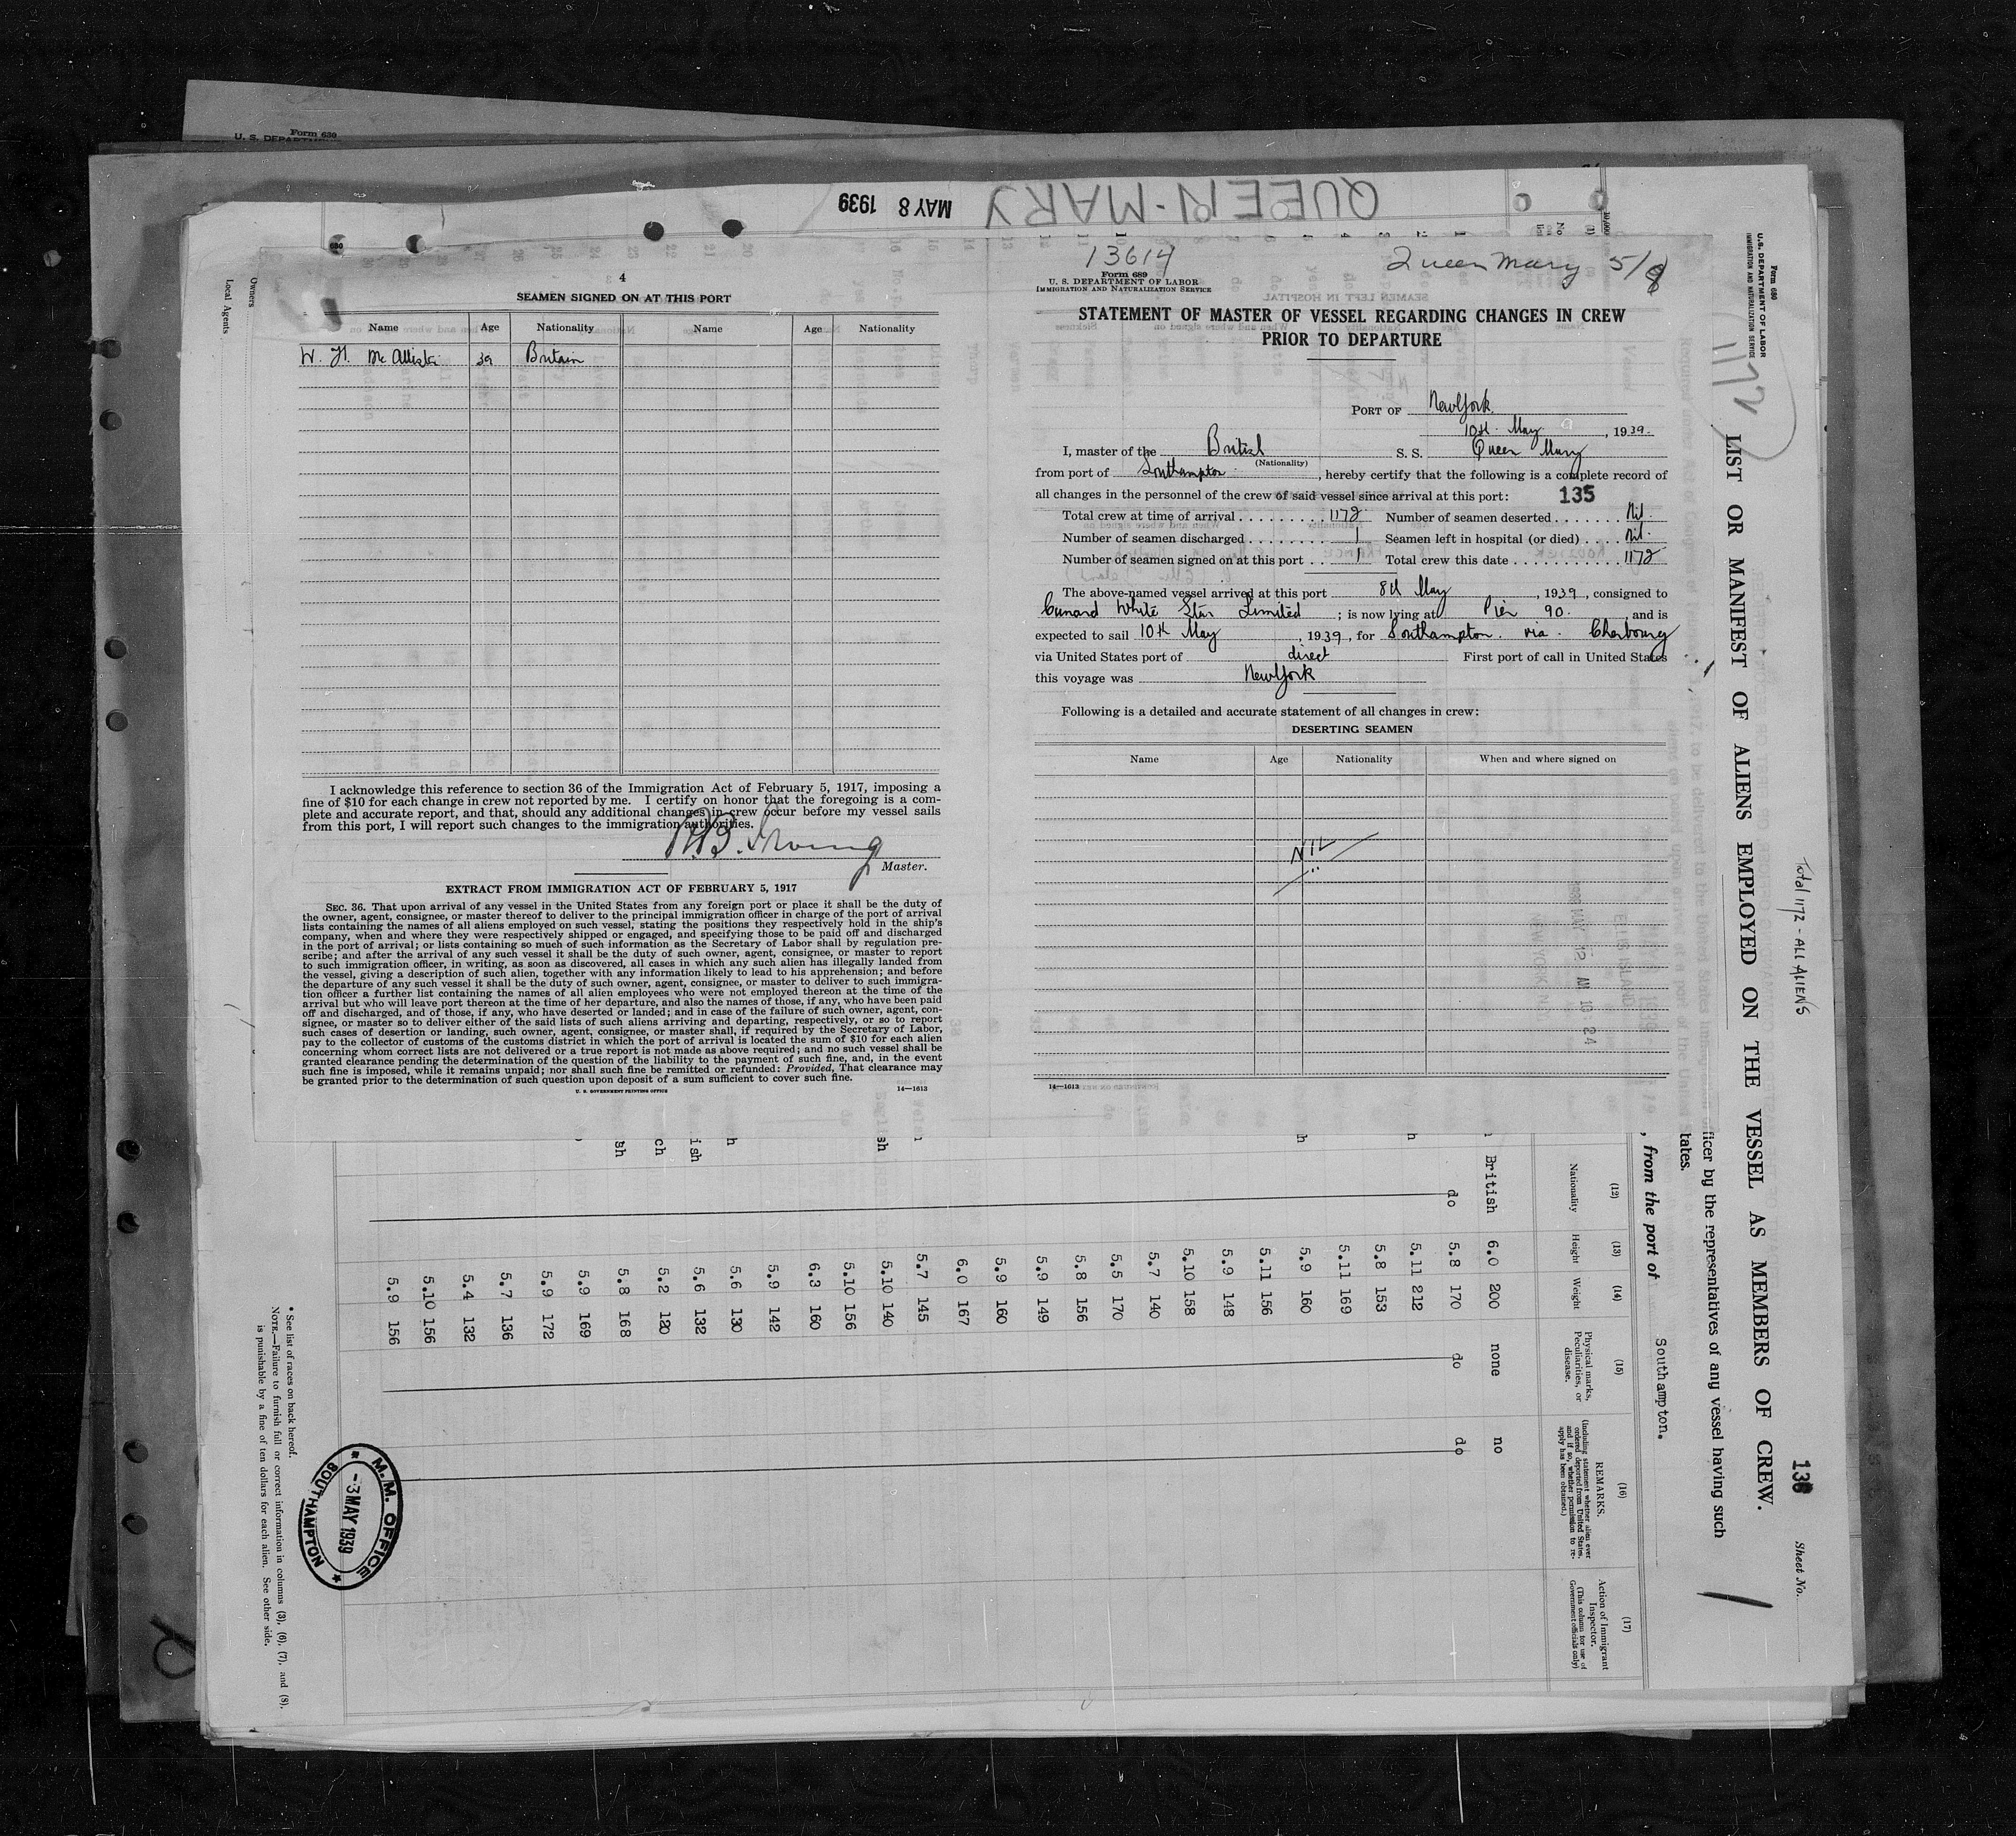 Form 630
U. S. DEPARTMENT
MAY 8 1939
QUEEN-MARY
Owners
Local Agents
4
SEAMEN SIGNED ON AT THIS PORT
Name Age Nationality Name Age Nationality
W. H. McAllister 39 Britain
I acknowledge this reference to section 36 of the Immigration Act of February 5, 1917, imposing a
fine of $10 for each change in crew not reported by me. I certify on honor that the foregoing is a com-
plete and accurate report, and that, should any additional changes in crew occur before my vessel sails
from this port, I will report such changes to the immigration authorities.
R.B. Irving
Master.
EXTRACT FROM IMMIGRATION ACT OF FEBRUARY 5, 1917
SEC. 36. That upon arrival of any vessel in the United States from any foreign port or place it shall be the duty of
the owner, agent, consignee, or master thereof to deliver to the principal immigration officer in charge of the port of arrival
lists containing the names of all aliens employed on such vessel, stating the positions they respectively hold in the ship's
company, when and where they were respectively shipped or engaged, and specifying those to be paid off and discharged
in the port of arrival; or lists containing so much of such information as the Secretary of Labor shall by regulation pre-
scribe; and after the arrival of any such vessel it shall be the duty of such owner, agent, consignee, or master to report
to such immigration officer, in writing, as soon as discovered, all cases in which any such alien has illegally landed from
the vessel, giving a description of such alien, together with any information likely to lead to his apprehension; and before
the departure of any such vessel it shall be the duty of such owner, agent, consignee, or master to deliver to such immigra-
tion officer a further list containing the names of all alien employees who were not employed thereon at the time of the
arrival but who will leave port thereon at the time of her departure, and also the names of those, if any, who have been paid
off and discharged, and of those, if any, who have deserted or landed; and in case of the failure of such owner, agent, con-
signee, or master so to deliver either of the said lists of such aliens arriving and departing, respectively, or so to report
such cases of desertion or landing, such owner, agent, consignee, or master shall, if required by the Secretary of Labor,
pay to the collector of customs of the customs district in which the port of arrival is located the sum of $10 for each alien
concerning whom correct lists are not delivered or a true report is not made as above required; and no such vessel shall be
granted clearance pending the determination of the question of the liability to the payment of such fine, and, in the event
such fine is imposed, while it remains unpaid; nor shall such fine be remitted or refunded: Provided, That clearance may
be granted prior to the determination of such question upon deposit of a sum sufficient to cover such fine.
U. S. GOVERNMENT PRINTING OFFICE 14—1613
13614
Queen Mary 5/8
Form 689
U. S. DEPARTMENT OF LABOR
IMMIGRATION AND NATURALIZATION SERVICE
STATEMENT OF MASTER OF VESSEL REGARDING CHANGES IN CREW
PRIOR TO DEPARTURE
PORT OF New York
10th May, 1939.
I, master of the British S. S. Queen Mary
(Nationality)
from port of Southampton, hereby certify that the following is a complete record of
all changes in the personnel of the crew of said vessel since arrival at this port: 135
Total crew at time of arrival 1172 Number of seamen deserted Nil.
Number of seamen discharged 1 Seamen left in hospital (or died) Nil.
Number of seamen signed on at this port 1 Total crew this date 1172
The above-named vessel arrived at this port 8th May, 1939, consigned to
Cunard White Star Limited; is now lying at Pier 90. and is
expected to sail 10th May, 1939, for Southampton. via. Cherbourg
via United States port of direct First port of call in United States
this voyage was New York
Following is a detailed and accurate statement of all changes in crew:
DESERTING SEAMEN
Name Age Nationality When and where signed on
NIL
14—1613
Form 680
U. S. DEPARTMENT OF LABOR
IMMIGRATION AND NATURALIZATION SERVICE
1172
LIST OR MANIFEST OF ALIENS EMPLOYED ON THE VESSEL AS MEMBERS OF CREW.
Total 1172 - All Aliens
136
Sheet No.
ficer by the representatives of any vessel having such
tates.
, from the port of Southampton.
(12) (13) (14) (15) (16) (17)
Nationality
Height
Weight
Physical marks, Peculiarities, or disease.
REMARKS.
(Including statement whether alien ever ordered deported from United States, and if so, whether permission to re-apply has been obtained.)
Action of Immigrant Inspector.
(This column for use of Government officials only)
British 6.0 200 none no
do 5.8 170 do do
5.11 212
5.8 153
5.11 169
5.9 160
5.11 156
5.9 148
5.10 158
5.7 140
5.5 170
5.8 156
5.9 149
5.9 160
6.0 167
5.7 145
5.10 140
5.10 156
6.3 160
5.9 142
5.6 130
5.6 132
5.2 120
5.8 168
5.9 169
5.9 172
5.7 136
5.4 132
5.10 156
5.9 156
* See list of races on back hereof.
NOTE.—Failure to furnish full or correct information in columns (3), (6), (7), and (8),
is punishable by a fine of ten dollars for each alien. See other side.
M.M. OFFICE
-3 MAY 1939
SOUTHAMPTON